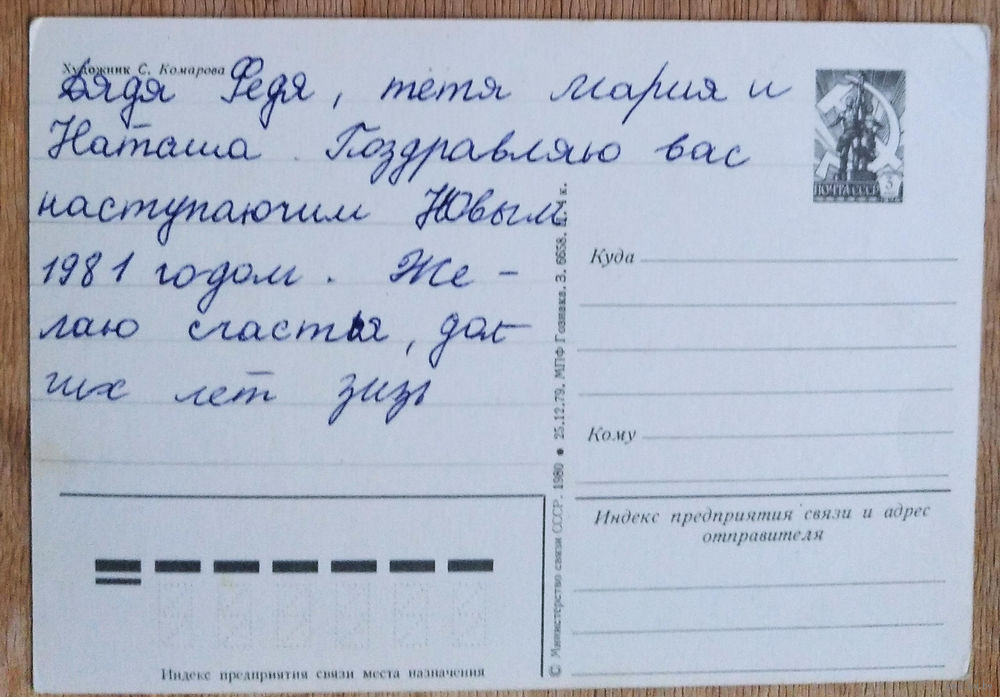 Художник С. Комарова
Дядя Федя, тётя Мария и
Наташа. Поздравляю вас
наступаючим Новым
1981 годом. Же-
лаю счастья, дол-
гих лет зизь
ПОЧТА СССР
Куда
Кому
Индекс предприятия связи и адрес
отправителя
Индекс предприятия связи места назначения
© Министерство связи СССР. 1980 • 25.12.79. МПФ Гознака. З. 6658. Ц. 4 к.